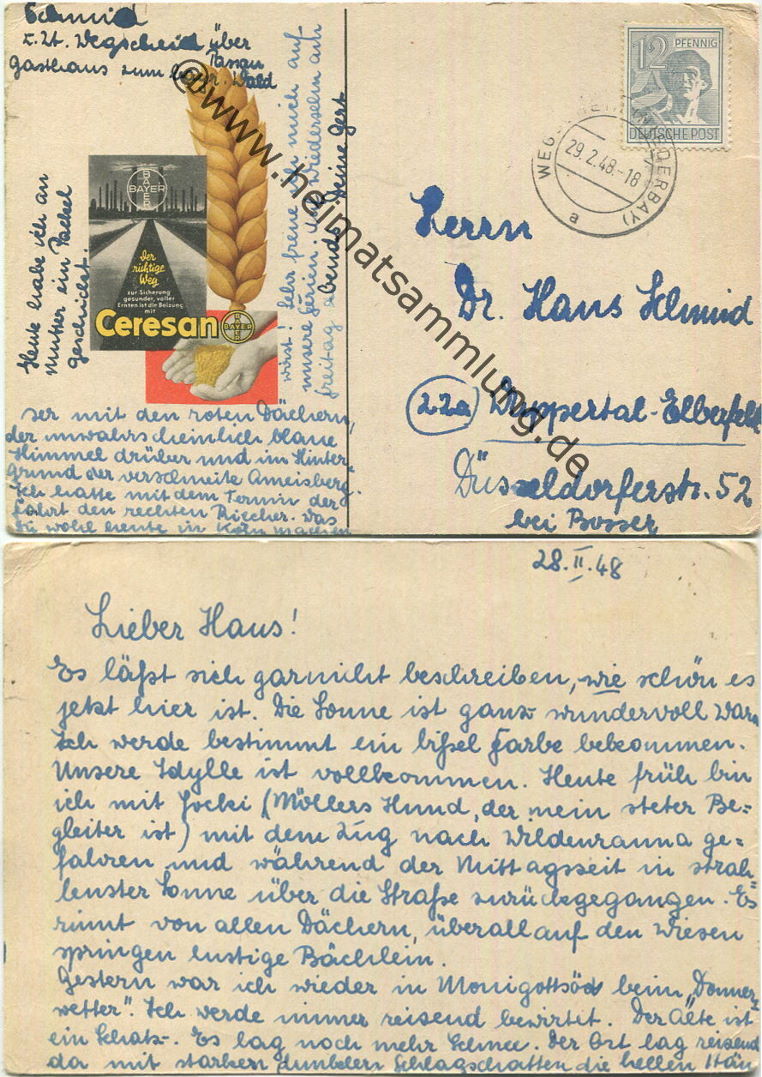 Schmid
z. Zt. Wegscheid über
Passau
Gasthaus zum
Bayr. Wald
Heute habe ich an
Mutter ein Packel
geschickt.
BAYER
BAYER
Der
richtige
Weg
zur Sicherung
gesunder, voller
Ernten ist die Beizung
mit
Ceresan
BAYER
BAYER
wirst! Sehr freue ich mich auf
unsere Ferien. Auf Wiedersehn am
Freitag
abend Deine Gert
ser mit den roten Dächern,
der unwahrscheinlich blaue
Himmel drüber und im Hinter-
grund der verschneite Ameisberg.
Ich hatte mit dem Termin der
Fahrt den rechten Riecher. Was
Du wohl heute in Köln machen
12 PFENNIG
DEUTSCHE POST
WEGSCHEID (NIEDERBAY)
29.2.48.-18
a
Herrn
Dr. Hans Schmid
(22a) Wuppertal-Elberfeld
Düsseldorferstr. 52
bei Bosser
@www.heimatsammlung.de
28.II.48
Lieber Hans!
Es läßt sich garnicht beschreiben, wie schön es
jetzt hier ist. Die Sonne ist ganz wundervoll warm
Ich werde bestimmt ein bißel Farbe bekommen.
Unsere Idylle ist vollkommen. Heute früh bin
ich mit Jocki (Möllers Hund, der mein steter Be=
gleiter ist) mit dem Zug nach Wildenranna ge=
fahren und während der Mittagszeit in strah=
lenster Sonne über die Straße zurückgegangen. Es
rinnt von allen Dächern, überall auf den Wiesen
springen lustige Bächlein.
Gestern war ich wieder in Monigottsöd beim „Donner=
wetter". Ich werde immer reisend bewirtet. Der Alte ist
ein Schatz. Es lag noch mehr Schnee. Der Ort lag reisend
da mit starken dunkelen Schlagschatten die hellen Häu